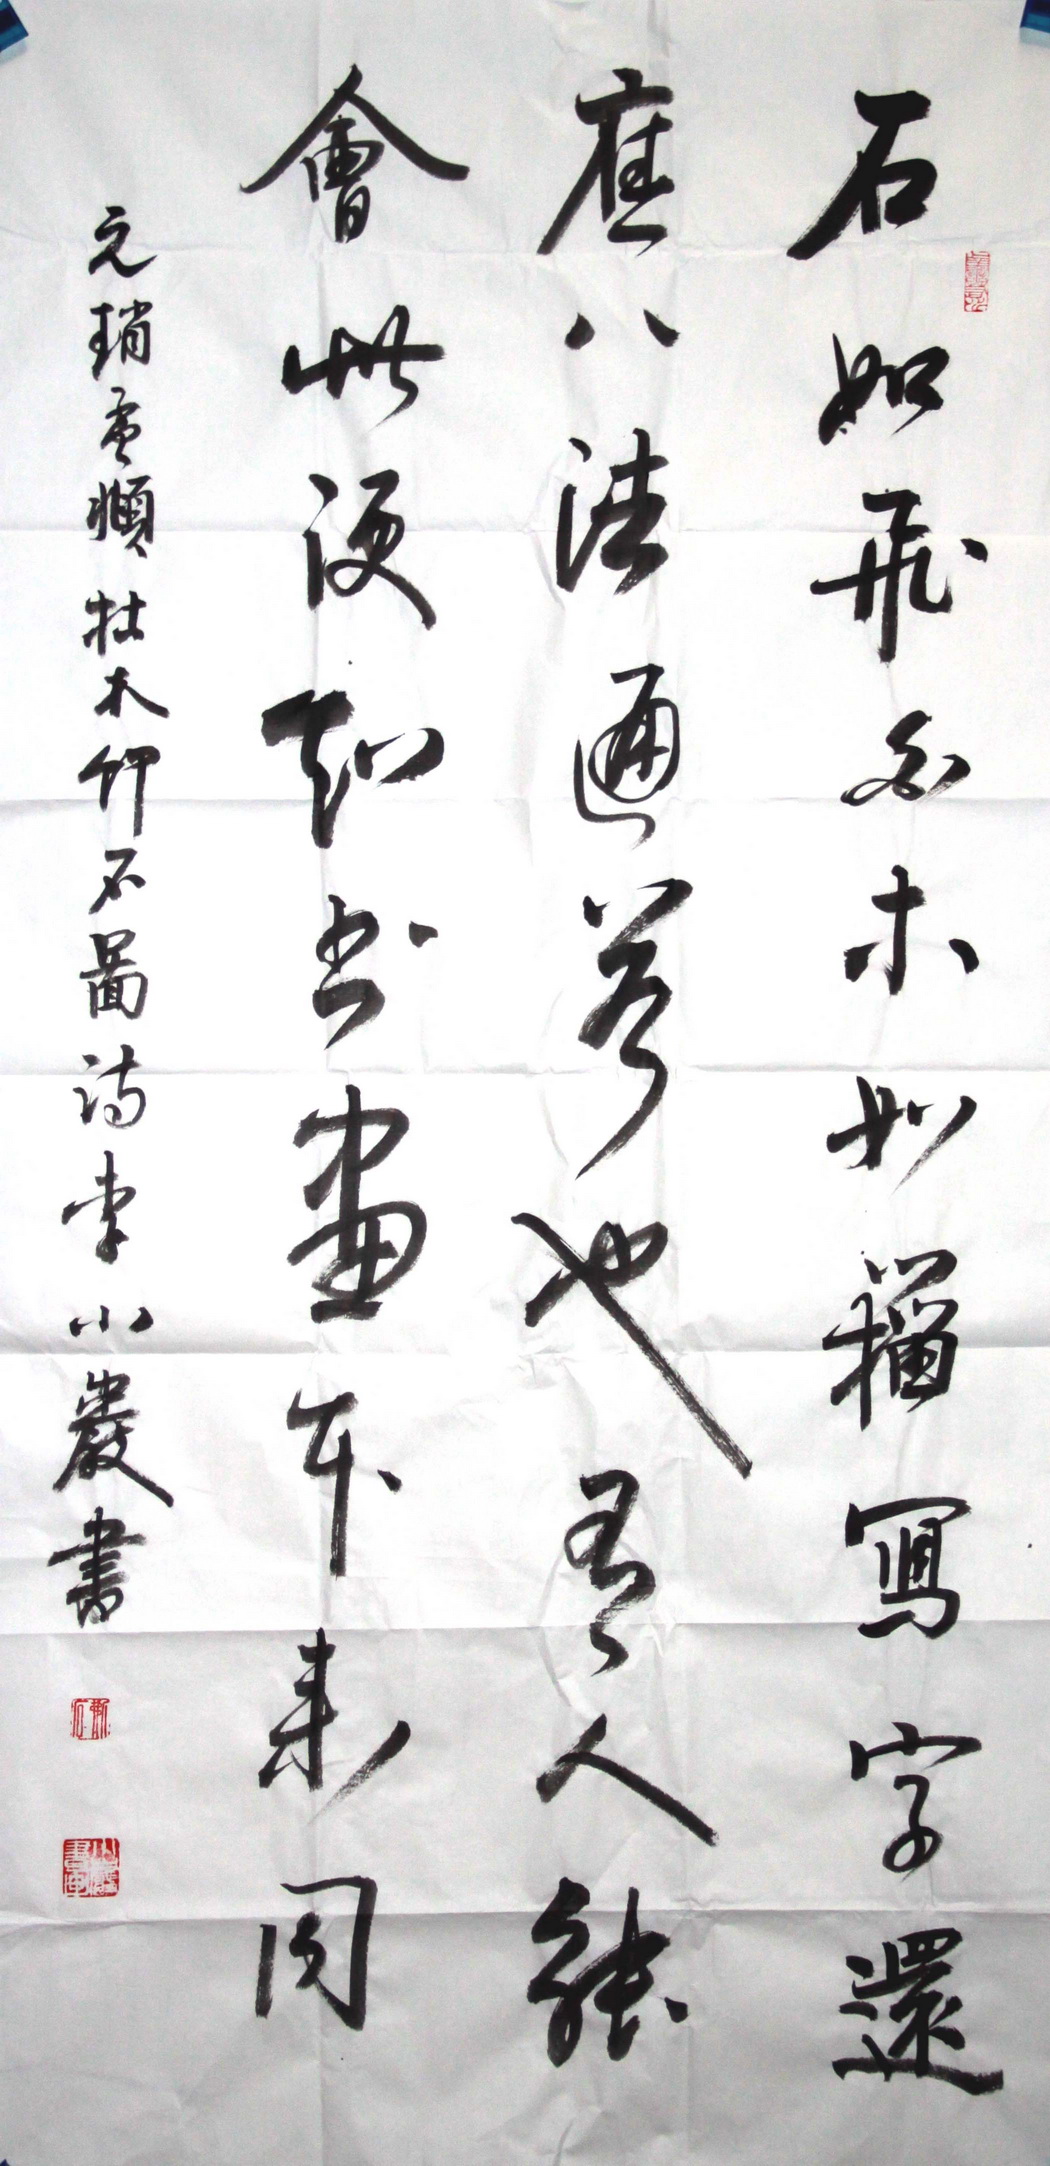 石如飛白木如籀寫字還
應八法通若也有人能
會此須知書畫本來同
元趙孟頫枯木竹石圖詩李小巖書